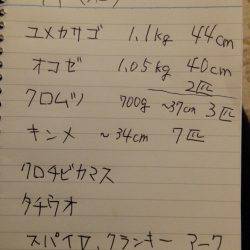 ユメカサゴ 1.1kg 44cm
オコゼ 1.05kg 40cm
2匹
クロムツ 700g ~37cm 3匹
キンメ ~34cm 7匹
クロチビカマス
タチウオ
スパイV, クランキー アーク